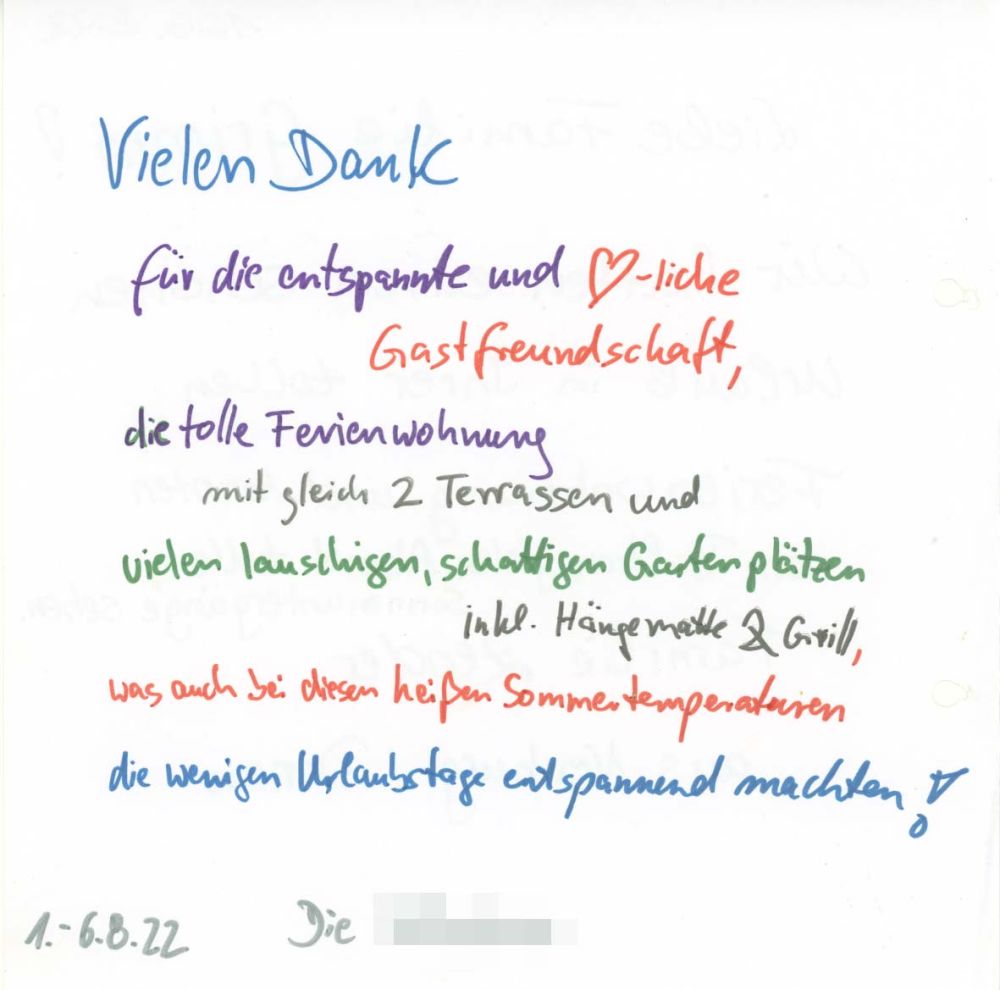 Vielen Dank
für die entspannte und ♡-liche
Gastfreundschaft,
die tolle Ferienwohnung
mit gleich 2 Terrassen und
vielen lauschigen, schattigen Gartenplätzen
inkl. Hängematte & Grill,
was auch bei diesen heißen Sommertemperaturen
die wenigen Urlaubstage entspannend machten!
1.-6.8.22 Die